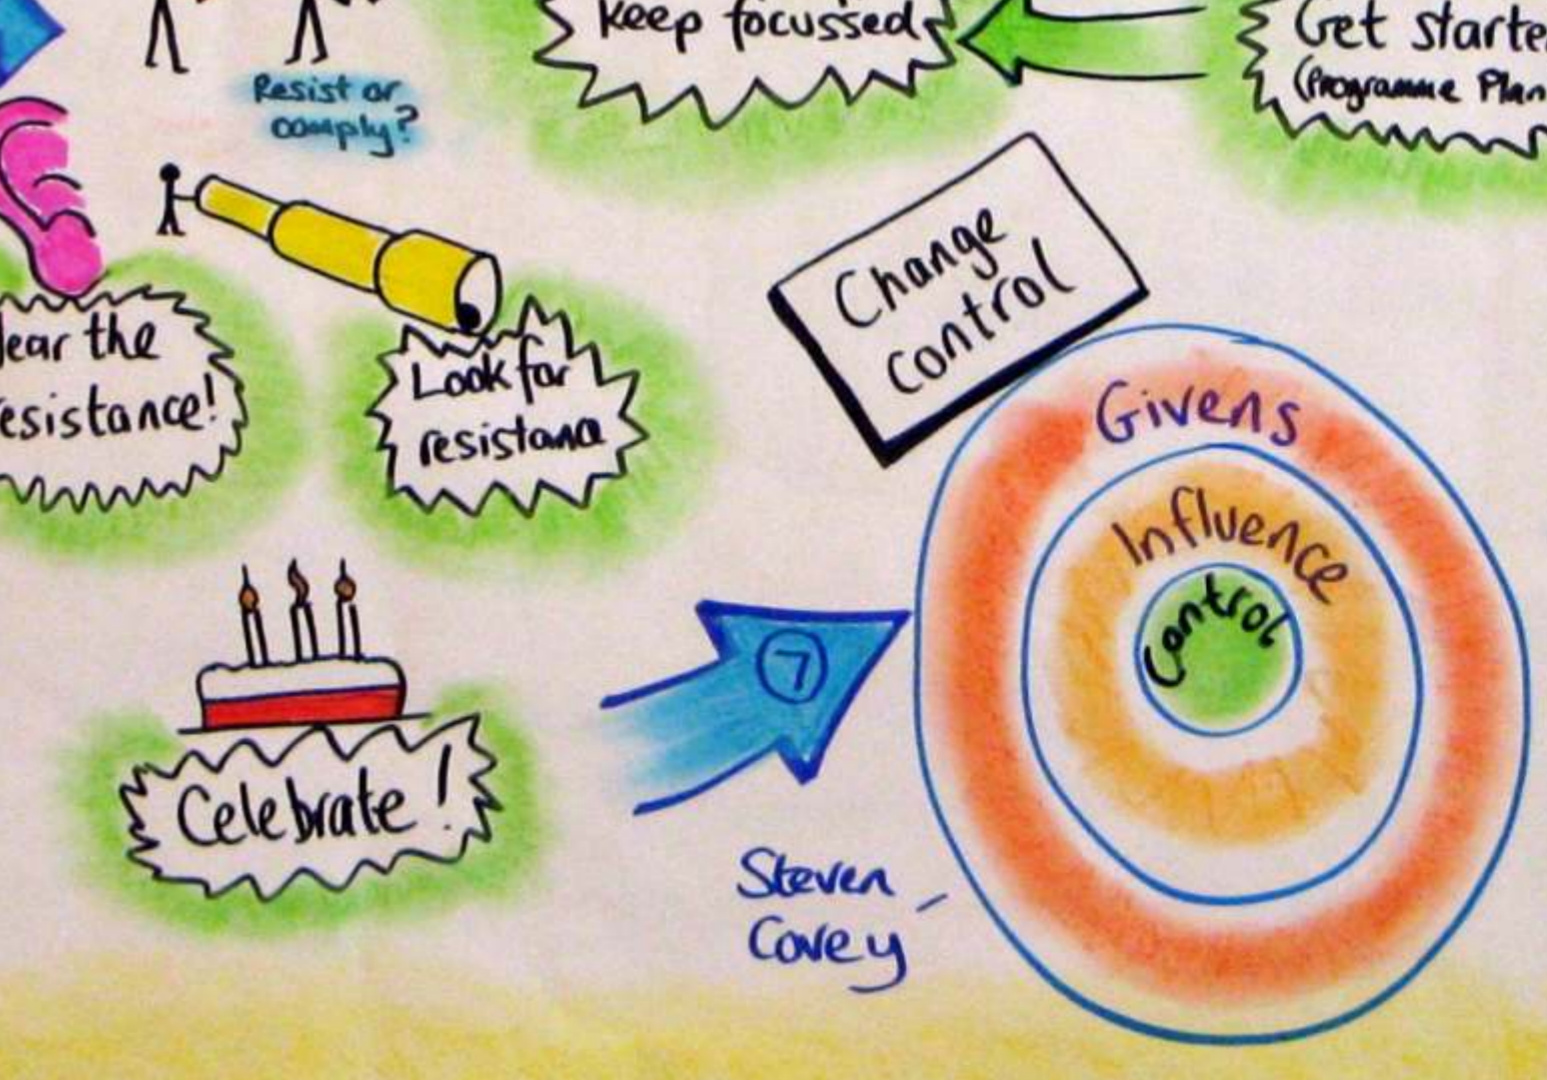 Keep focussed
Get starte
(Programme Plan
Resist or
comply?
ear the
esistance!
Look for
resistance
Change
control
Givens
Influence
Control
7
Celebrate!
Steven
Covey